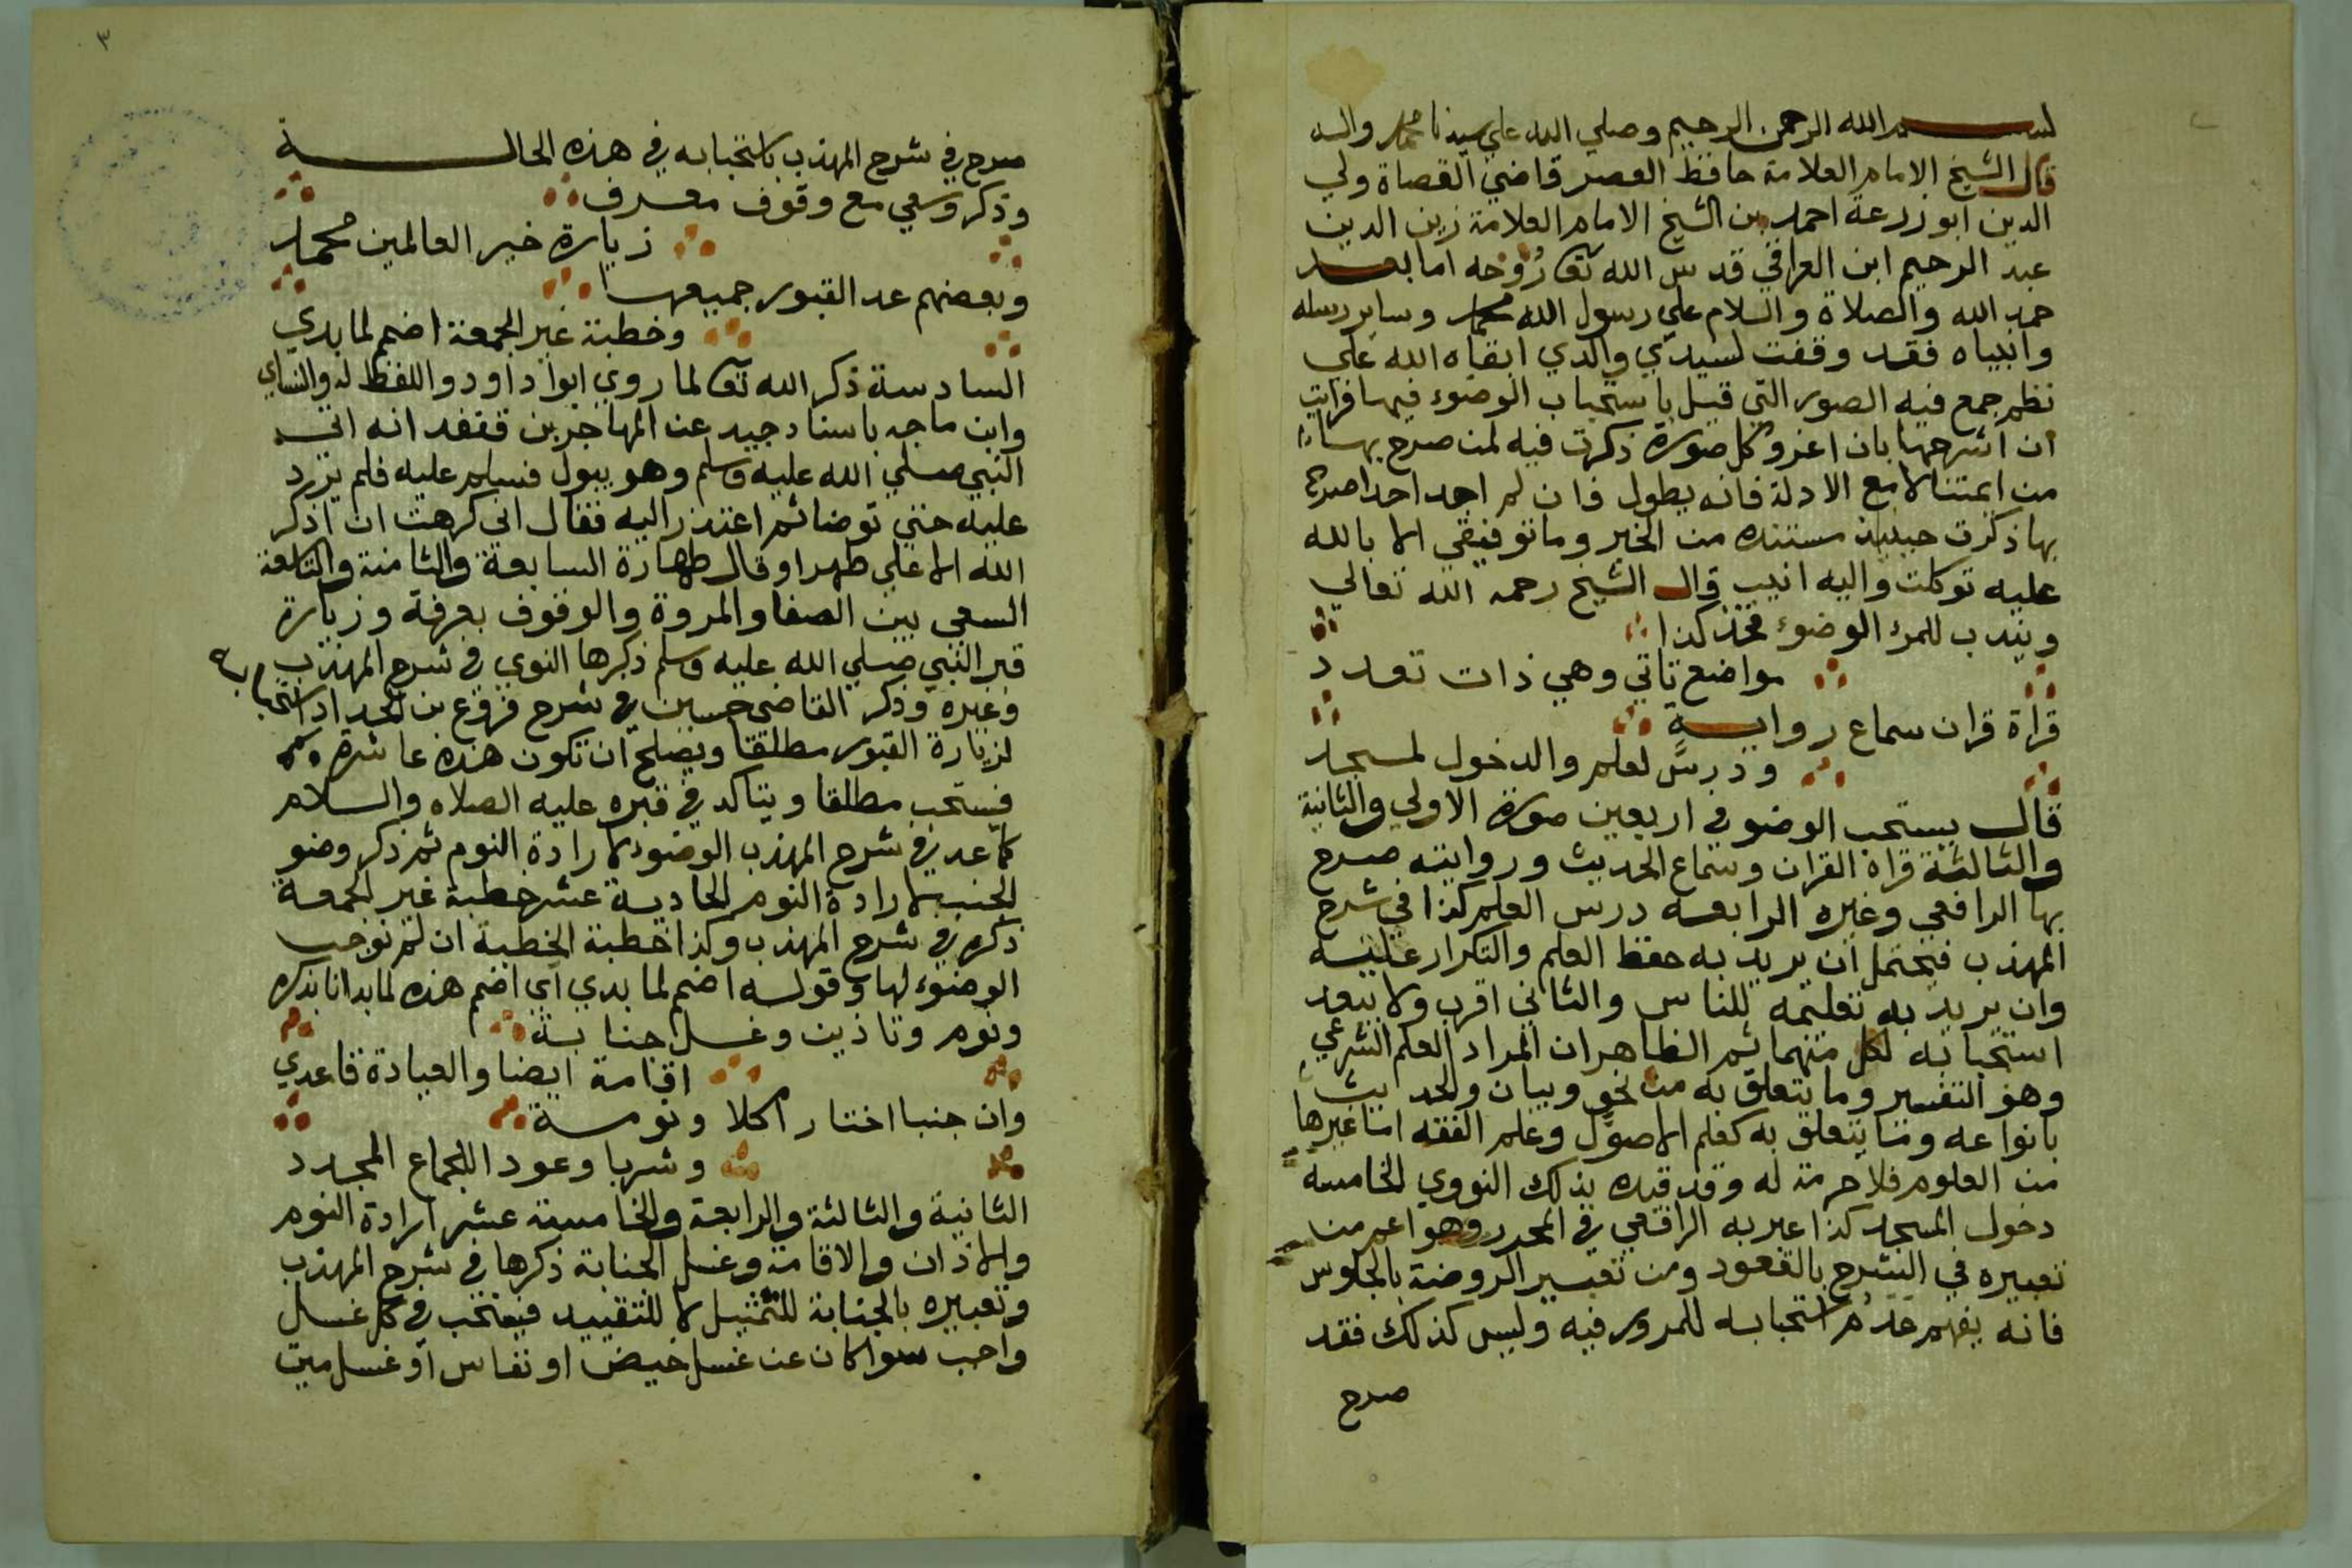 بسم الله الرحمن الرحيم وصلي الله علي سيدنا محمد واله
قال الشيخ الامام العلامة حافظ العصر قاضي القضاة ولي
الدين ابو زرعة احمد بن الشيخ الامام العلامة زين الدين
عبد الرحيم ابن العراقي قدس الله تعا روحه اما بعد
حمد الله والصلاة والسلام علي رسول الله محمد وساير رسله
وانبياه فقد وقفت لسيدي والدي ابقاه الله علي
نظم جمع فيه الصور التي قيل باستحباب الوضوء فيها فرايت
ان اشرحها بان اعزو كل صورة ذكرت فيه لمن صرح بها
من ايمتنا لا مع الادلة فانه يطول فان لم اجد احدا صرح
بها ذكرت حينيذ مستنده من الخبر وما توفيقي الا بالله
عليه توكلت واليه انيب قال الشيخ رحمه الله تعالي
ويندب للمرء الوضوء فخذ كذا
مواضع تاتي وهي ذات تعدد
قراة قران سماع رواية
ودرس لعلم والدخول لمسجد
قال يستحب الوضو في اربعين صورة الاولي والثانية
والثالثة قراة القران وسماع الحديث وروايته صرح
بها الرافعي وغيره الرابعة درس العلم كذا في شرح
المهذب فيحتمل ان يريد به حفظ العلم والتكرار عليه
وان يريد به تعليمه للناس والثاني اقرب ولا يبعد
استحبابه لكل منهما ثم الظاهر ان المراد العلم الشرعي
وهو التفسير وما يتعلق به من نحو وبيان والحديث
بانواعه وما يتعلق به كعلم الاصول وعلم الفقه اما غيرها
من العلوم فلا حرمة له وقد قيده بذلك النووي الخامسة
دخول المسجد كذا عبر به الرافعي في المحرر وهو اعم من
تعبيره في الشرح بالقعود ومن تعبير الروضة بالجلوس
فانه يفهم عدم استحبابه للمرور فيه وليس كذلك فقد
صرح
٣
صرح في شرح المهذب باستحبابه في هذه الحالة
وذكر وسعي مع وقوف معرف
زيارة خير العالمين محمد
وبعضهم عد القبور جميعها
وخطبة غير الجمعة اضمم لما بدي
السادسة ذكر الله تعا لما روي ابوا داود واللفظ له والنساي
وابن ماجه باسناد جيد عن المهاجر بن قنفد انه اتي
النبي صلي الله عليه وسلم وهو يبول فسلم عليه فلم يرد
عليه حتي توضا ثم اعتذر اليه فقال اني كرهت ان اذكر
الله الا علي طهر او قال طهارة السابعة والثامنة والتاسعة
السعي بين الصفا والمروة والوقوف بعرفة وزيارة
قبر النبي صلي الله عليه وسلم ذكرها النووي في شرح المهذب
وغيره وذكر القاضي حسين في شرح فروع بن الحداد استحبابه
لزيارة القبور مطلقا ويصلح ان تكون هذه عاشرة
فيستحب مطلقا ويتاكد في قبره عليه الصلاه والسلام
كما عد في شرح المهذب الوضوء لارادة النوم ثم ذكر وضو
الجنب لارادة النوم الحادية عشر خطبة غير الجمعة
ذكره في شرح المهذب وكذا خطبة الخطبة ان لم نوجب
الوضوء لها وقوله اضمم لما بدي اي اضمم هذه لما بدانا بذكره
ونوم وتاذين وغسل جنابة
اقامة ايضا والعبادة فاعددي
وان جنبا اختار اكلا ونومة
وشربا وعود اللجماع المجدد
الثانية والثالثة والرابعة والخامسة عشر ارادة النوم
والاذان والاقامة وغسل الجنابة ذكرها في شرح المهذب
وتعبيره بالجنابة للتمثيل لا للتقييد فيستحب في كل غسل
واجب سوا كان عن غسل حيض او نفاس او غسل ميت